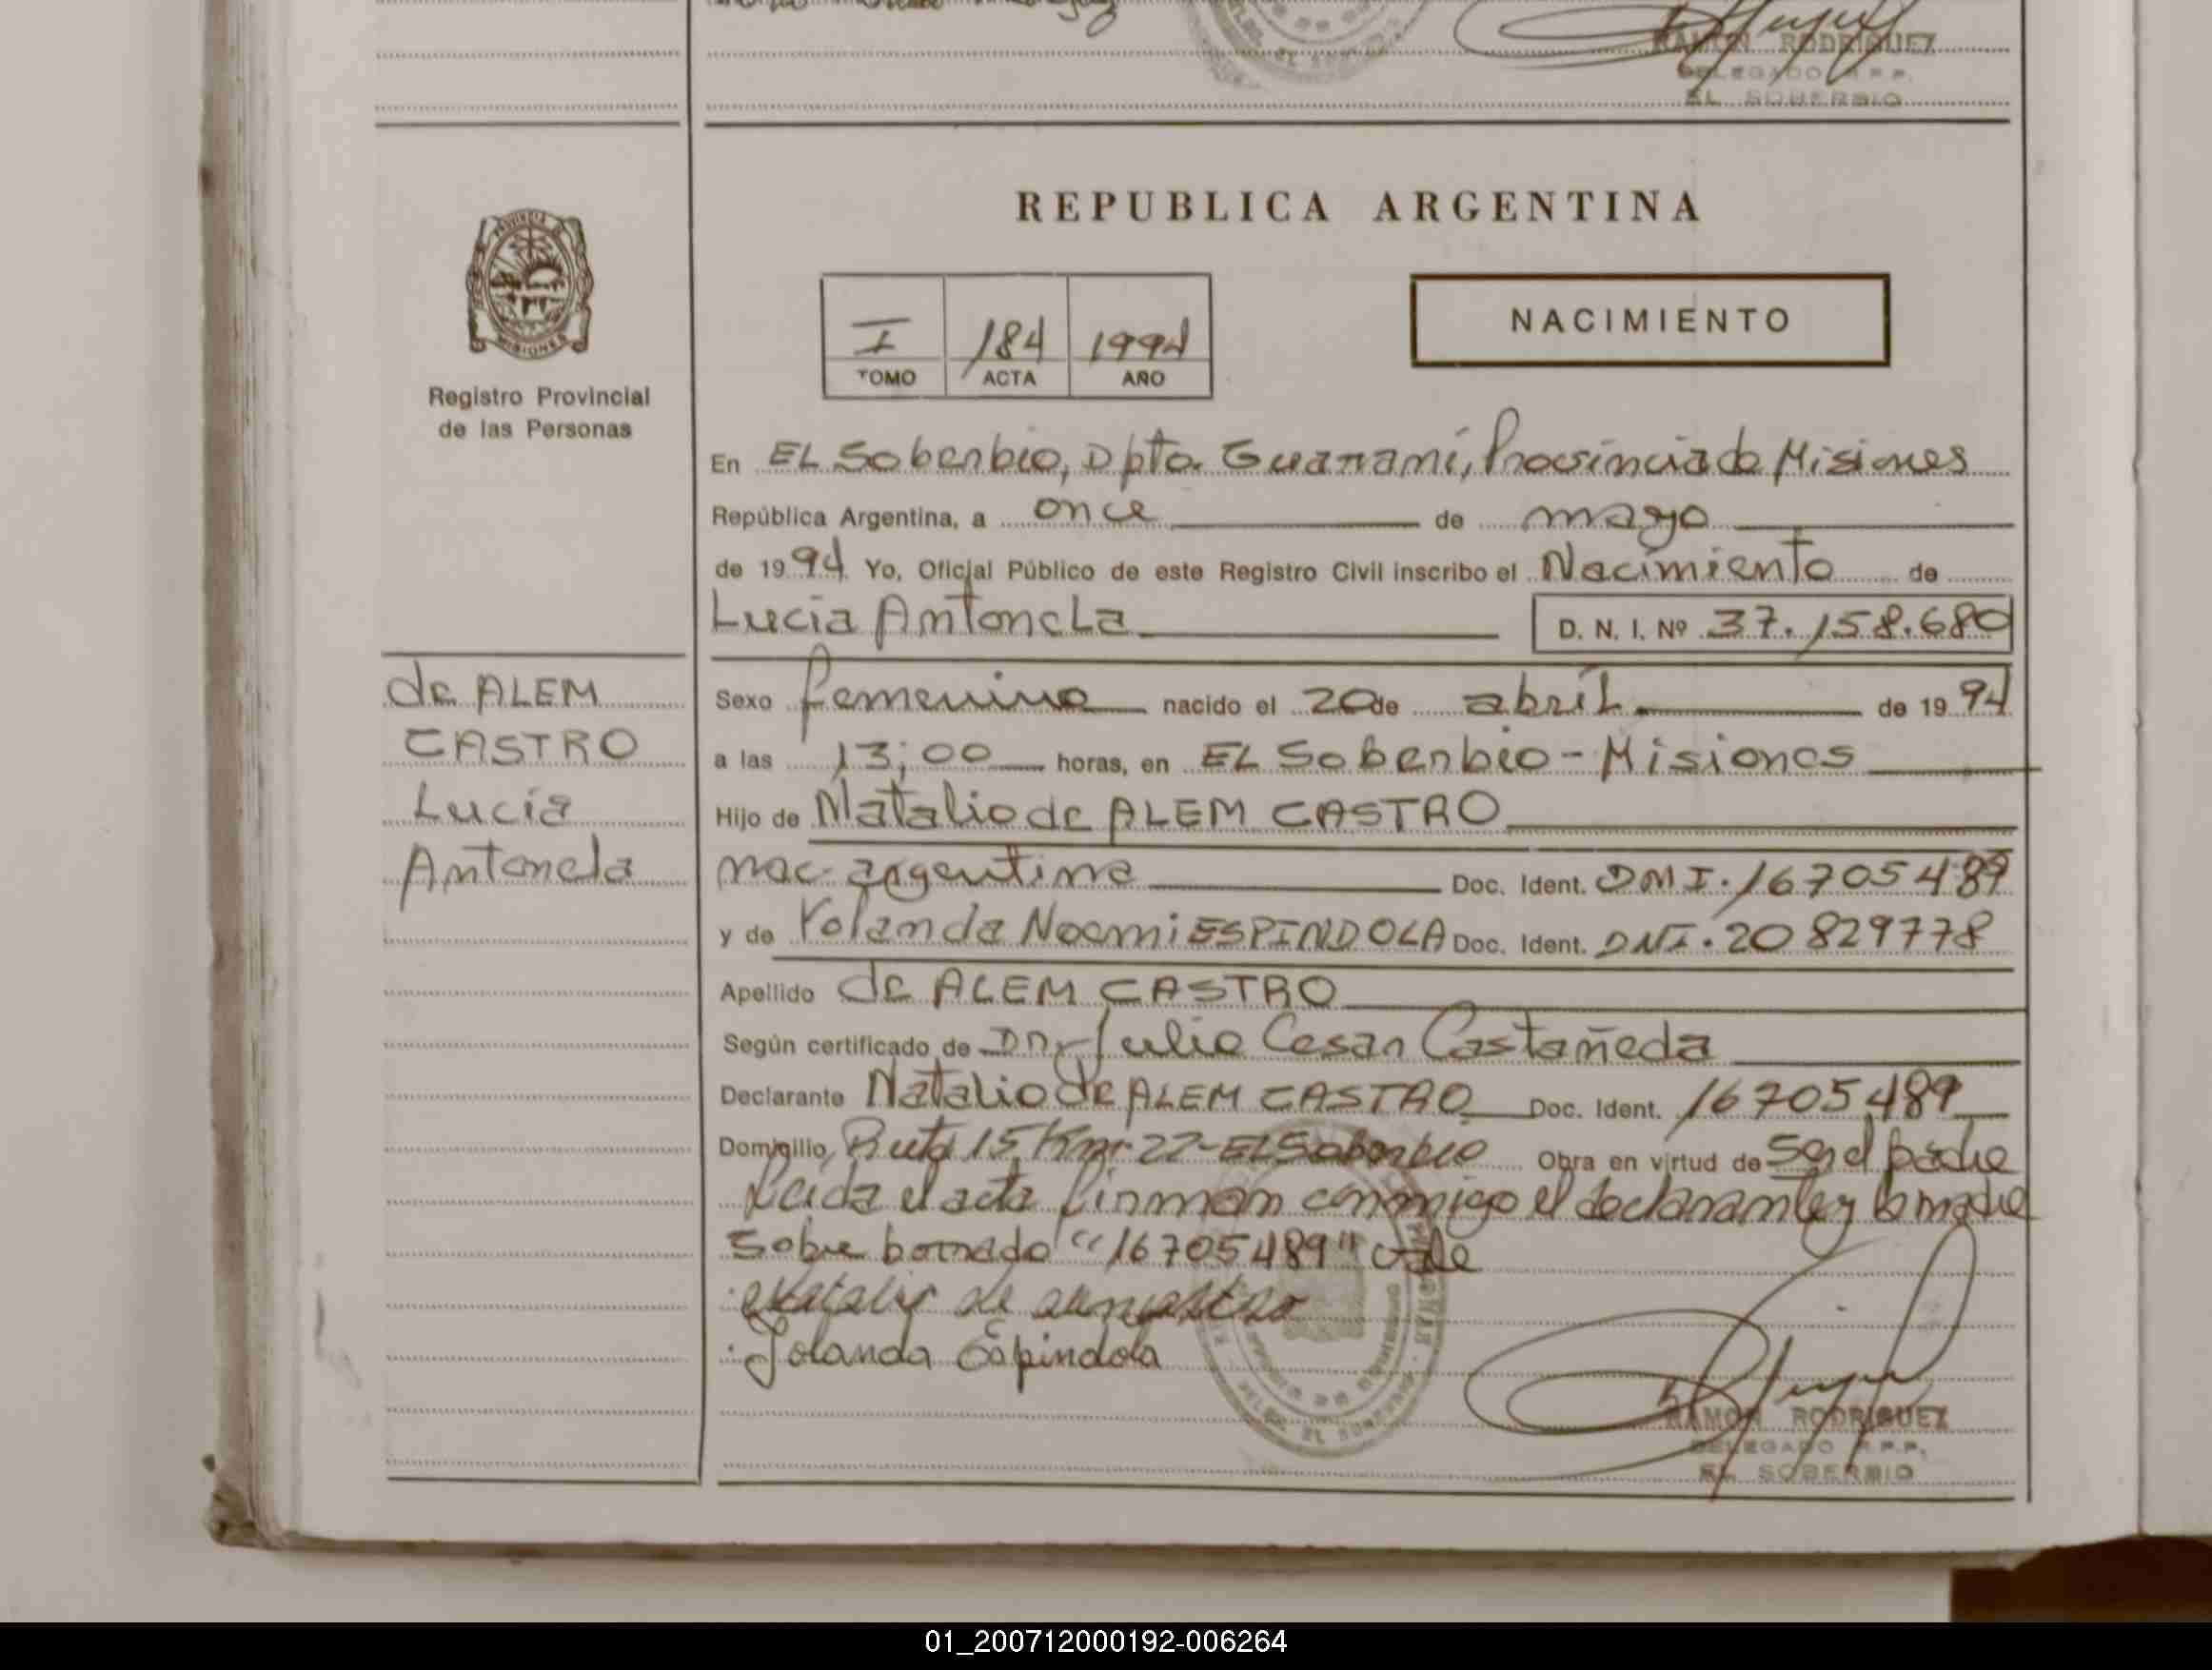 RAMON RODRIGUEZ
DELEGADO R.P.P.
EL SOBERBIO
REPUBLICA ARGENTINA
PROVINCIA
MISIONES
Registro Provincial
de las Personas
I
184
1994
TOMO
ACTA
AÑO
NACIMIENTO
En EL Soberbio, Dpto. Guaraní, Provincia de Misiones
República Argentina, a once de mayo
de 1994 Yo, Oficial Público de este Registro Civil inscribo el Nacimiento de
Lucia Antonela
D. N. I. Nº 37.158.680
de ALEM
CASTRO
Lucia
Antonela
Sexo femenino nacido el 20 de abril de 1994
a las 13;00 horas, en EL Soberbio - Misiones
Hijo de Natalio de ALEM CASTRO
nac. argentina Doc. Ident. DNI. 16705489
y de Yolanda Noemi ESPINDOLA Doc. Ident. DNI. 20829778
Apellido de ALEM CASTRO
Según certificado de Dr. Julio Cesar Castañeda
Declarante Natalio de ALEM CASTRO Doc. Ident. 16705489
Domicilio Ruta 15 Km. 22 - EL Soberbio Obra en virtud de ser el padre
Leida el acta firman conmigo el declarante y la madre
Sobre borrado "16705489" vale
Yolanda Espindola
RAMON RODRIGUEZ
DELEGADO R.P.P.
EL SOBERBIO
01_200712000192-006264